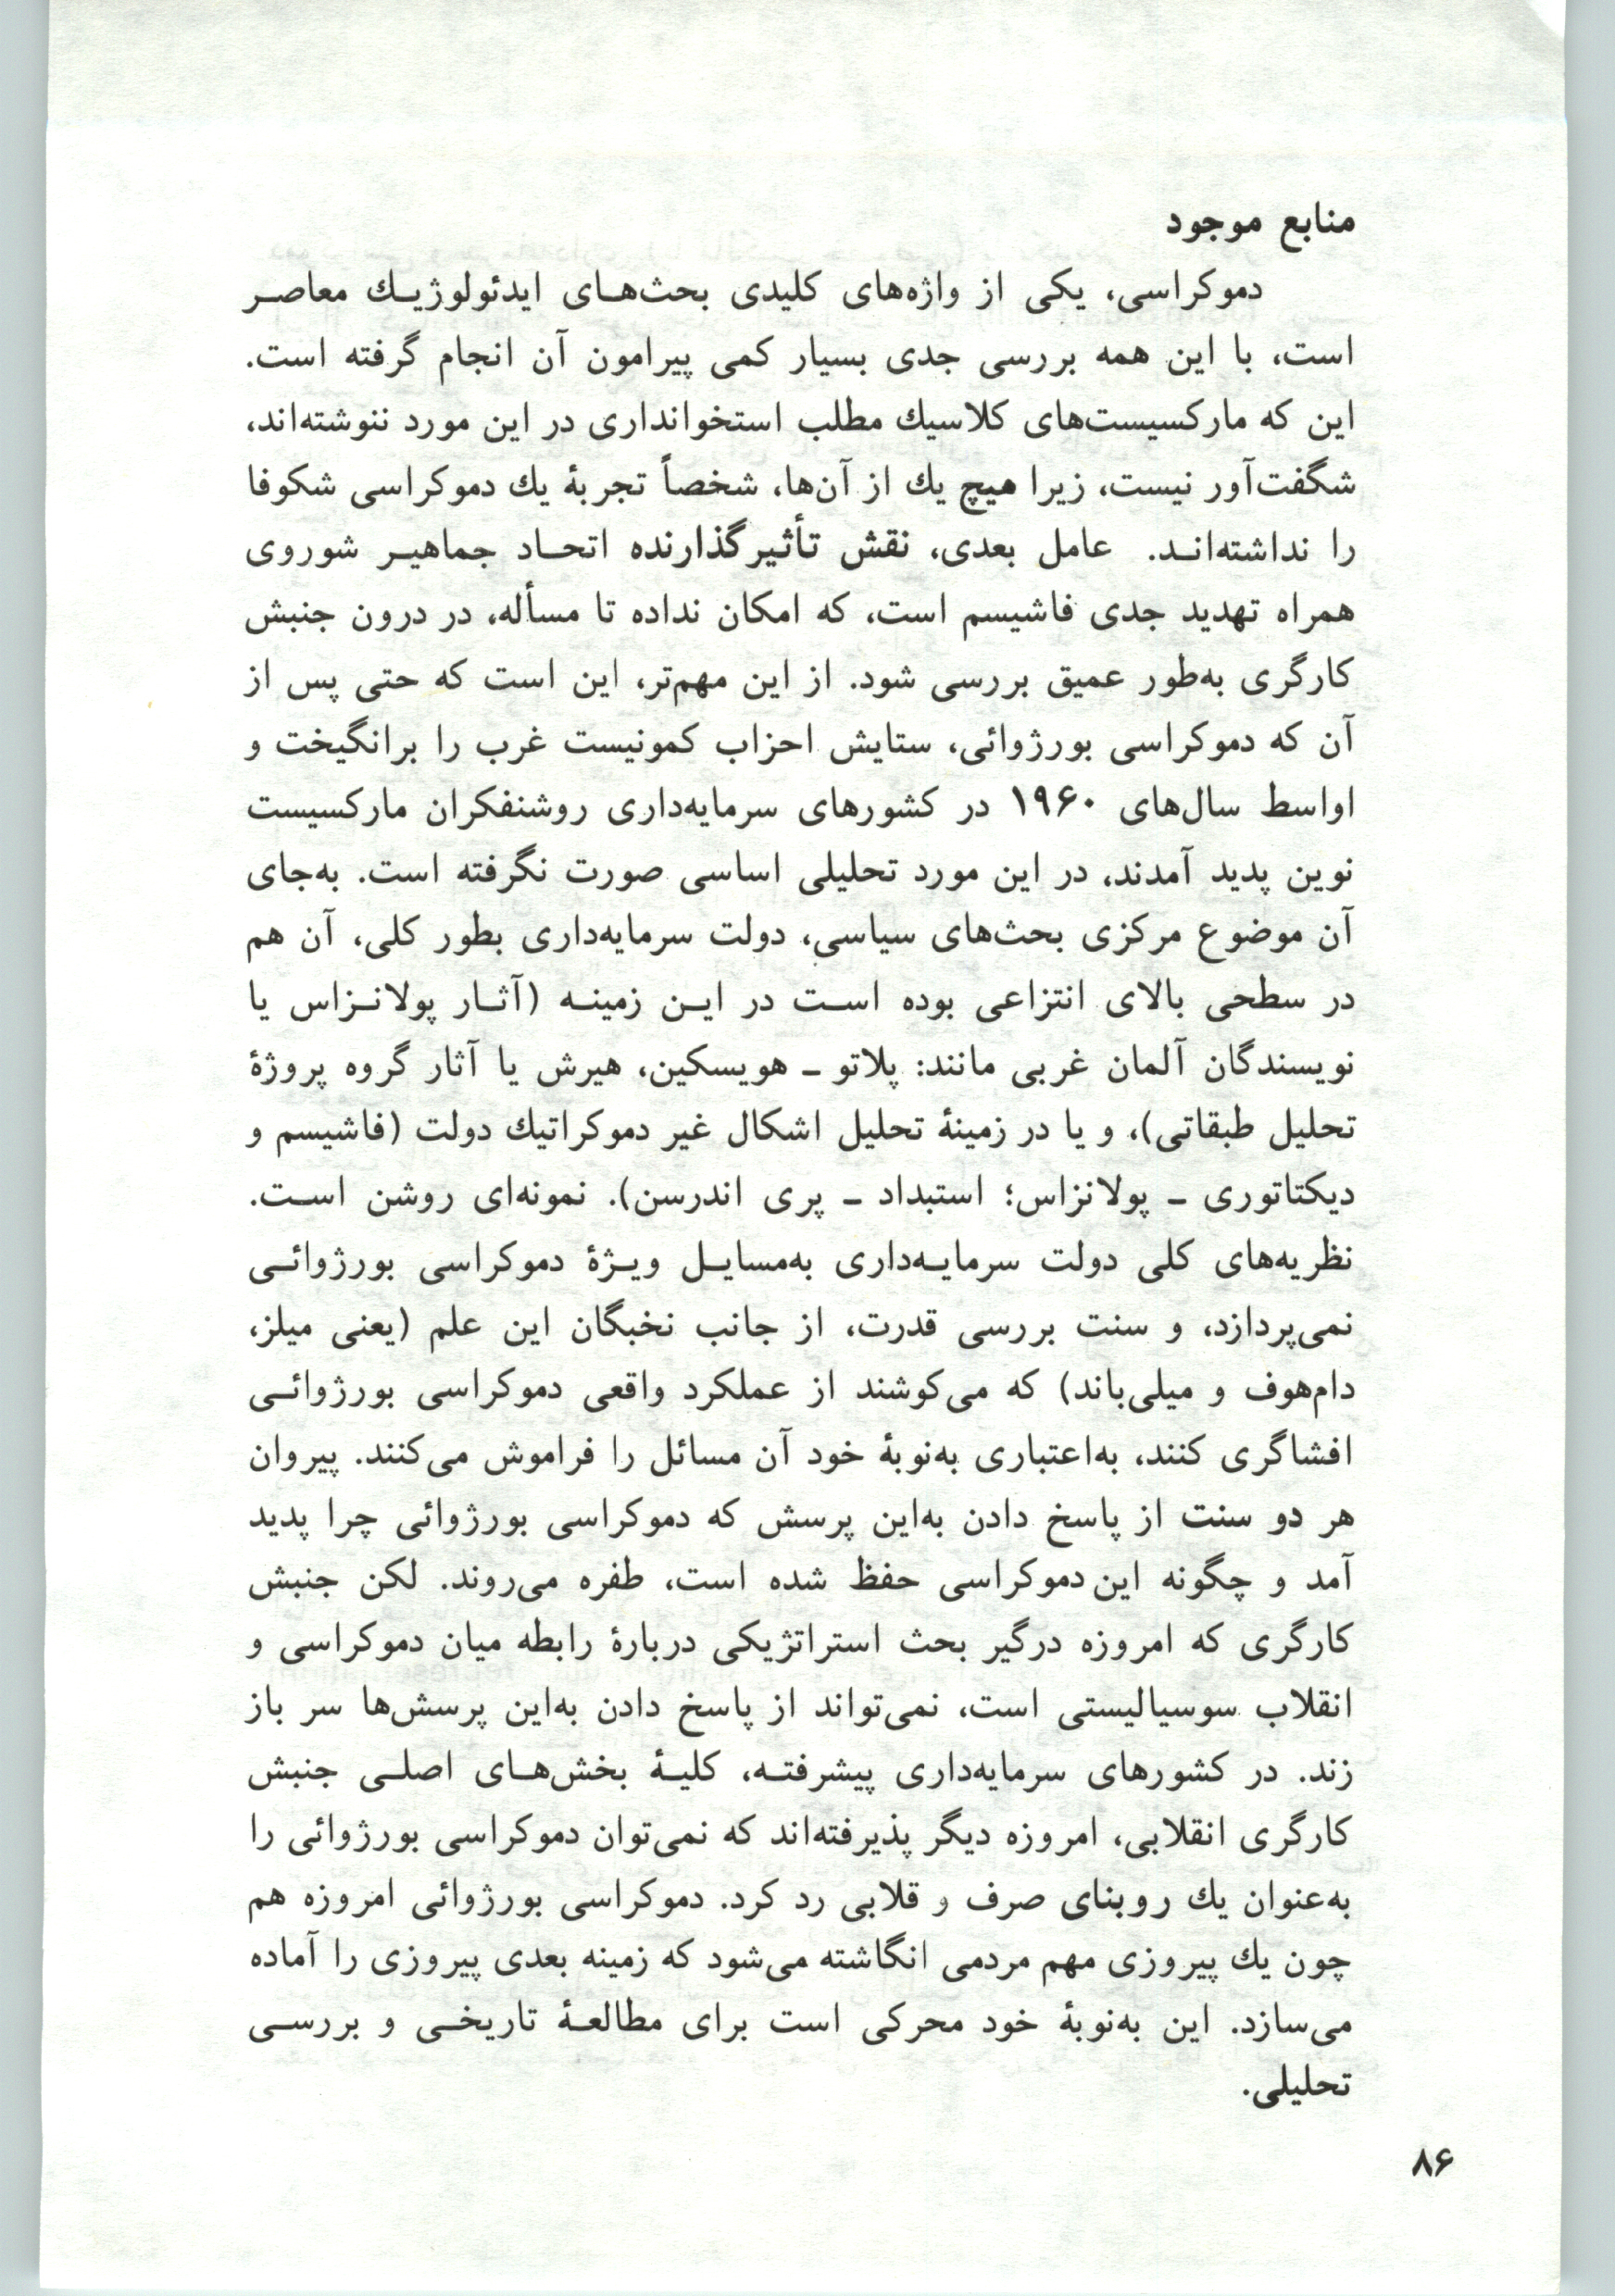 منابع موجود
دموکراسی، یکی از واژه‌های کلیدی بحث‌هـای ایدئولوژیـك معاصـر
است، با این همه بررسی جدی بسیار کمی پیرامون آن انجام گرفته است.
این که مارکسیست‌های کلاسیك مطلب استخوانداری در این مورد ننوشته‌اند،
شگفت‌آور نیست، زیرا هیچ یك از آن‌ها، شخصاً تجربهٔ یك دموکراسی شکوفا
را نداشته‌انـد. عامل بعدی، نقش تأثیرگذارنده اتحـاد جماهیـر شوروی
همراه تهدید جدی فاشیسم است، که امکان نداده تا مسأله، در درون جنبش
کارگری به‌طور عمیق بررسی شود. از این مهم‌تر، این است که حتی پس از
آن که دموکراسی بورژوائی، ستایش احزاب کمونیست غرب را برانگیخت و
اواسط سال‌های ۱۹۶۰ در کشورهای سرمایه‌داری روشنفکران مارکسیست
نوین پدید آمدند، در این مورد تحلیلی اساسی صورت نگرفته است. به‌جای
آن موضوع مرکزی بحث‌های سیاسی، دولت سرمایه‌داری بطور کلی، آن هم
در سطحی بالای انتزاعی بوده اسـت در ایـن زمینـه (آثـار پولانـزاس یا
نویسندگان آلمان غربی مانند: پلاتو ـ هویسکین، هیرش یا آثار گروه پروژهٔ
تحلیل طبقاتی)، و یا در زمینهٔ تحلیل اشکال غیر دموکراتیك دولت (فاشیسم و
دیکتاتوری ـ پولانزاس؛ استبداد ـ پری اندرسن). نمونه‌ای روشن اسـت.
نظریه‌های کلی دولت سرمایـه‌داری به‌مسایـل ویـژهٔ دموکراسی بورژوائـی
نمی‌پردازد، و سنت بررسی قدرت، از جانب نخبگان این علم (یعنی میلز،
دام‌هوف و میلی‌باند) که می‌کوشند از عملکرد واقعی دموکراسی بورژوائـی
افشاگری کنند، به‌اعتباری به‌نوبهٔ خود آن مسائل را فراموش می‌کنند. پیروان
هر دو سنت از پاسخ دادن به‌این پرسش که دموکراسی بورژوائی چرا پدید
آمد و چگونه این دموکراسی حفظ شده است، طفره می‌روند. لکن جنبش
کارگری که امروزه درگیر بحث استراتژیکی دربارهٔ رابطه میان دموکراسی و
انقلاب سوسیالیستی است، نمی‌تواند از پاسخ دادن به‌این پرسش‌ها سر باز
زند. در کشورهای سرمایه‌داری پیشرفتـه، کلیـهٔ بخش‌هـای اصلـی جنبش
کارگری انقلابی، امروزه دیگر پذیرفته‌اند که نمی‌توان دموکراسی بورژوائی را
به‌عنوان یك روبنای صرف و قلابی رد کرد. دموکراسی بورژوائی امروزه هم
چون یك پیروزی مهم مردمی انگاشته می‌شود که زمینه بعدی پیروزی را آماده
می‌سازد. این به‌نوبهٔ خود محرکی است برای مطالعـهٔ تاریخـی و بررسـی
تحلیلی.
۸۶